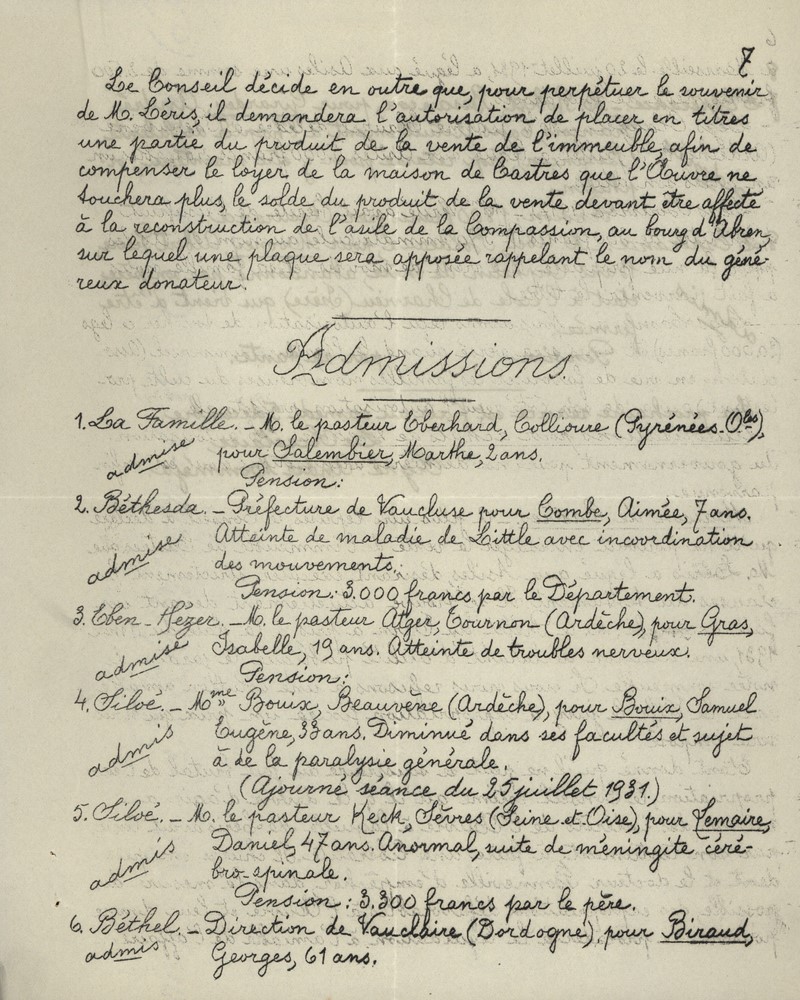 7
Le Conseil décide en outre que, pour perpétuer le souvenir
de M. Léris, il demandera l'autorisation de placer en titres
une partie du produit de la vente de l'immeuble, afin de
compenser le loyer de la maison de Castres que l'Œuvre ne
touchera plus, le solde du produit de la vente devant être affecté
à la reconstruction de l'asile de la Compassion, au bourg d'Abren,
sur lequel une plaque sera apposée rappelant le nom du géné-
reux donateur.
Admissions.
1. La Famille. – M. le pasteur Eberhard, Collioure (Pyrénées-Oles),
admise
pour Salembier, Marthe, 2 ans.
Pension:
2. Béthesda. – Préfecture de Vaucluse pour Combe, Aimée, 7 ans.
admise
Atteinte de maladie de Little avec incoordination
des mouvements.
Pension: 3.000 francs par le Département.
3. Eben-Hézer. – M. le pasteur Atger, Tournon (Ardèche), pour Gras,
admise
Isabelle, 19 ans. Atteinte de troubles nerveux.
Pension:
4. Siloé. – Mme Bouix, Beauvène (Ardèche), pour Bouix, Samuel
admis
Eugène, 33 ans. Diminué dans ses facultés et sujet
à de la paralysie générale.
(Ajourné séance du 25 juillet 1931.)
5. Siloé. – M. le pasteur Keck, Sèvres (Seine-et-Oise), pour Lemaire,
admis
Daniel, 47 ans. Anormal, suite de méningite céré-
bro-spinale.
Pension: 3.300 francs par le père.
6. Béthel. – Direction de Vauclaire (Dordogne), pour Biraud,
admis
Georges, 61 ans.